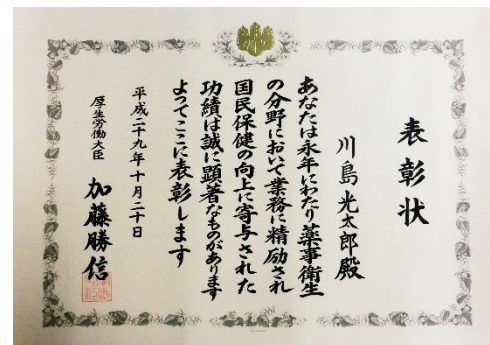 表彰状
川島光太郎殿
あなたは永年にわたり薬事衛生
の分野において業務に精励され
国民保健の向上に寄与された
功績は誠に顕著なものがあります
よってここに表彰します
平成二十九年十月二十日
厚生労働大臣 加藤勝信